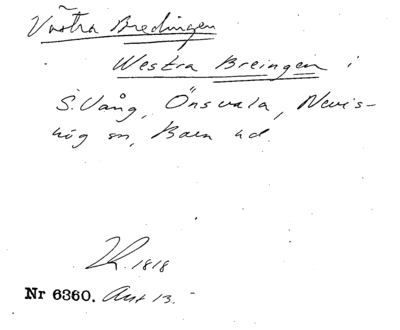 Västra Bredingen
Westra Breingen i
S. Vång, Önsvala, Nevis-
hög sn, Bara hd.
1818
Nr 6360. Akt 13.